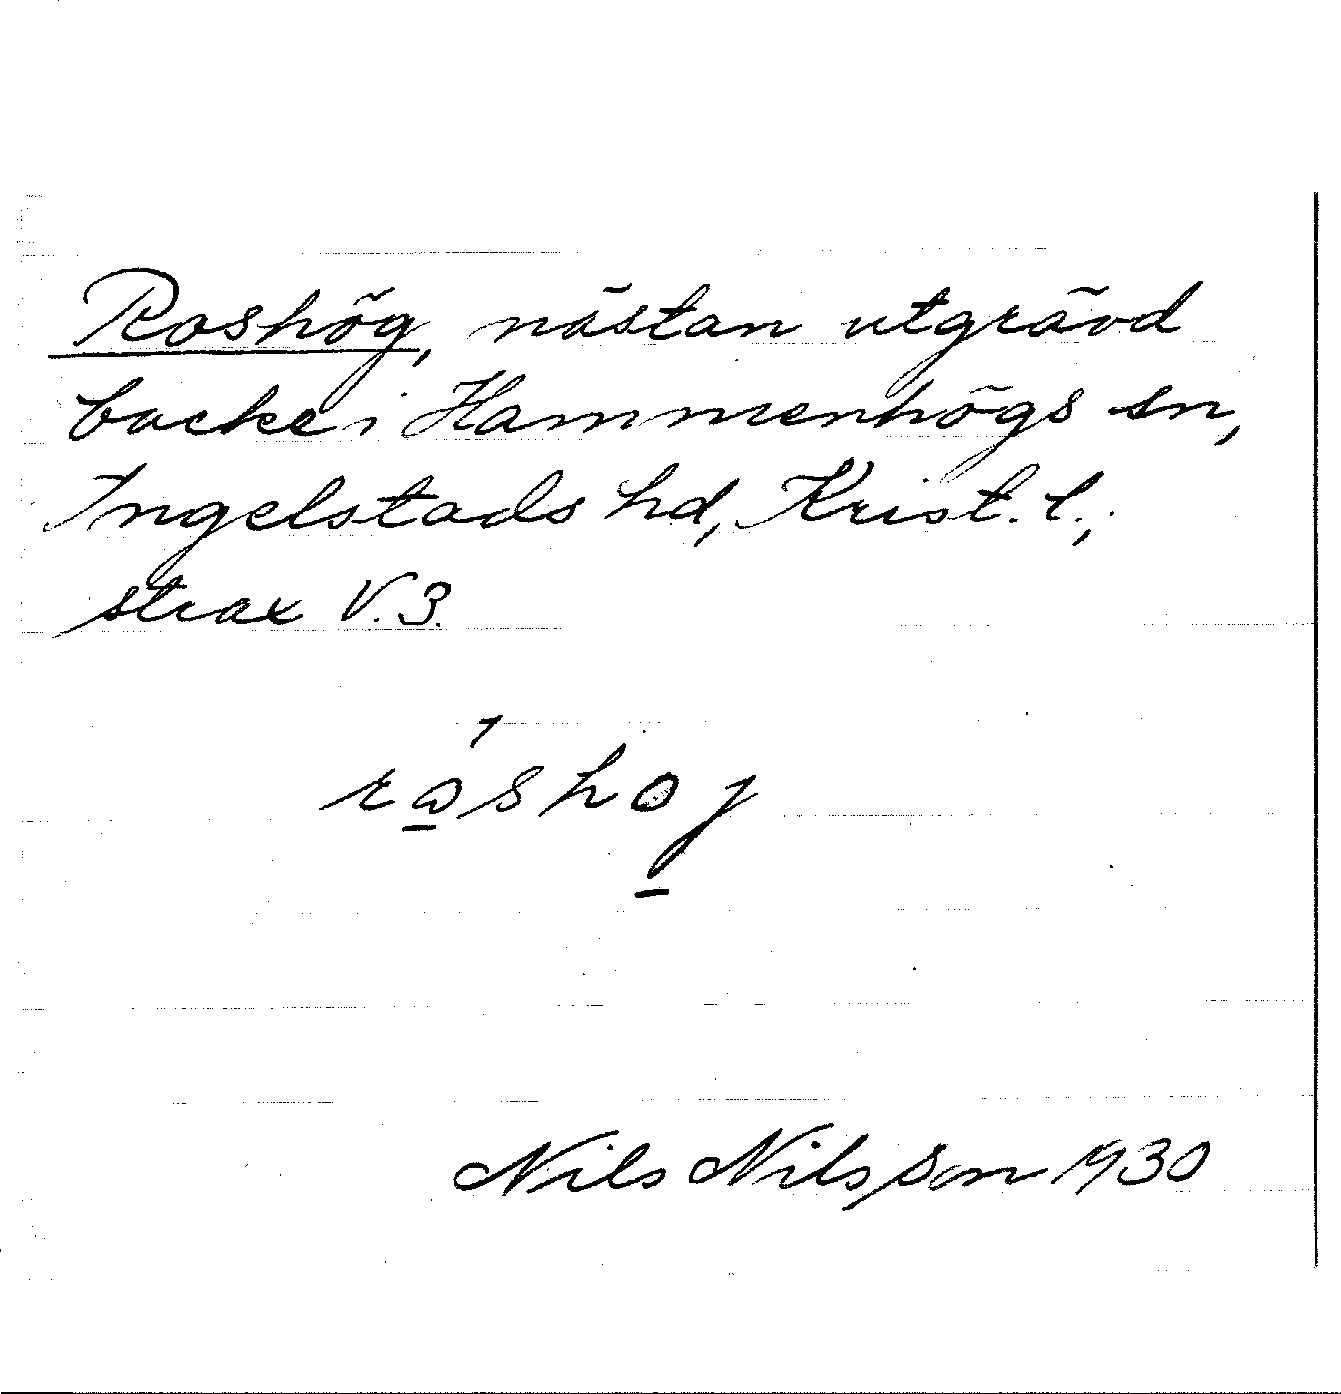 Roshög, nästan utgrävd
backe i Hammenhögs sn,
Ingelstads hd, Krist. l.,
strax V. 3.
Nils Nilsson 1930